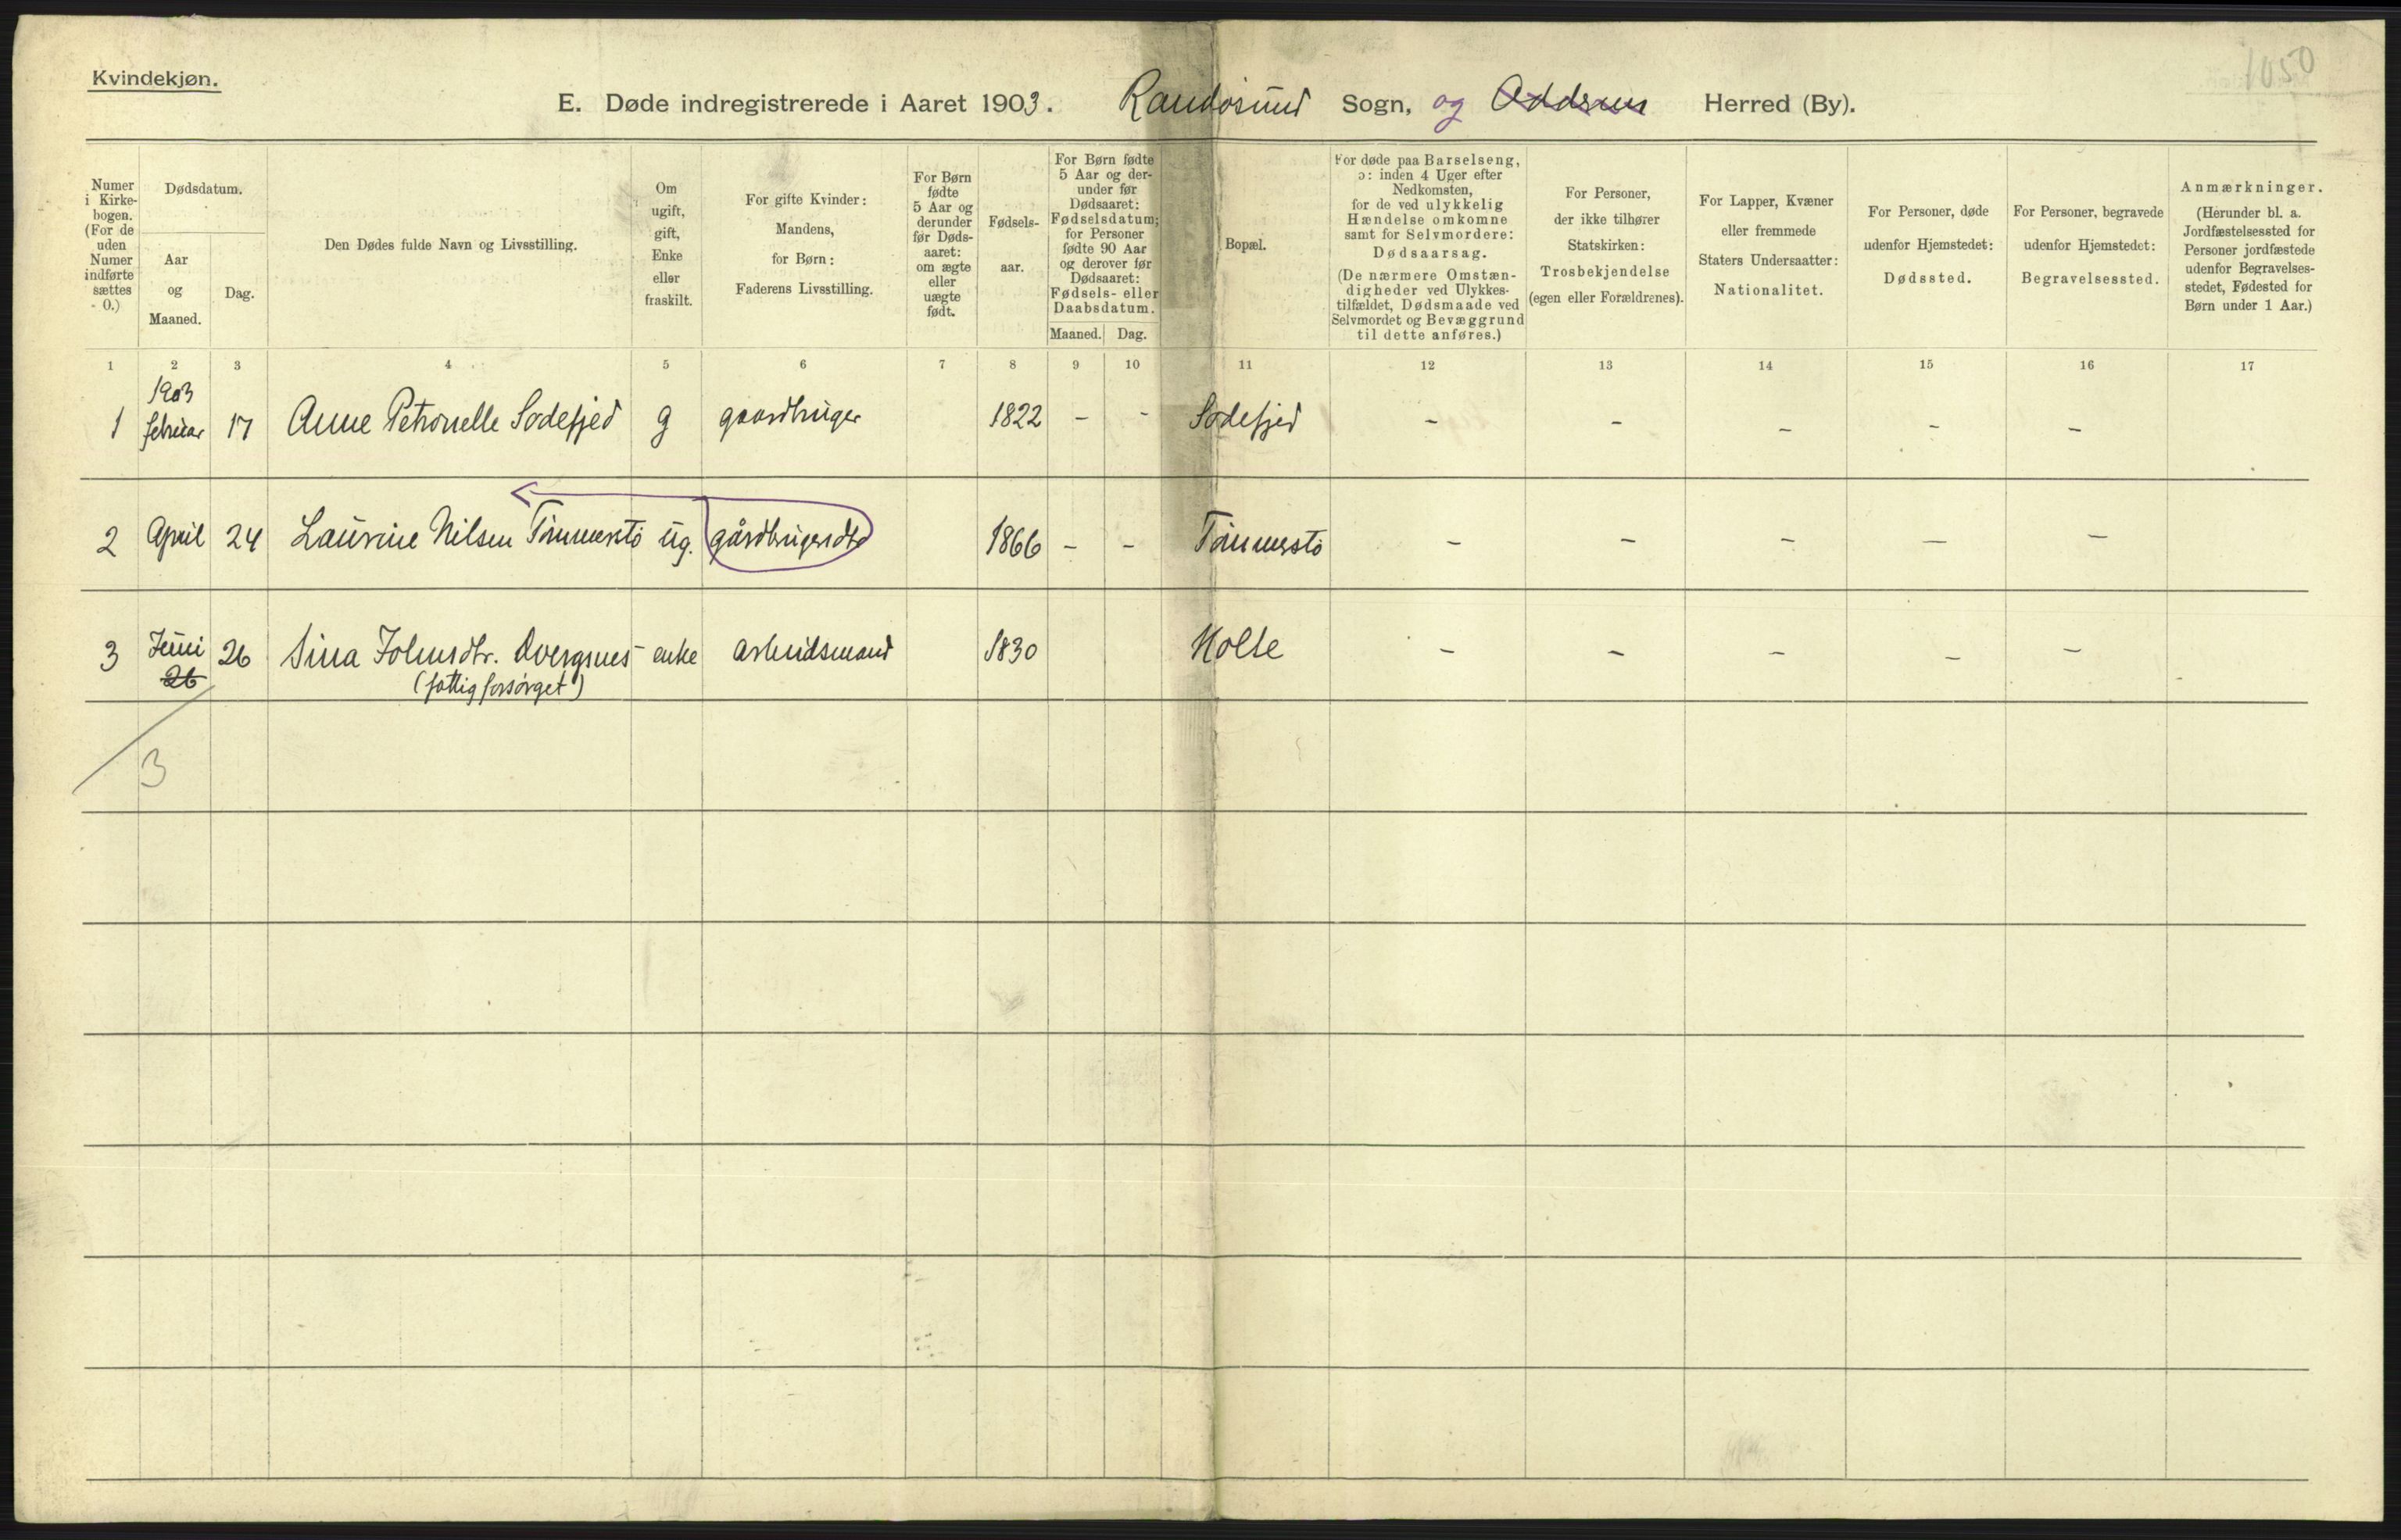 Kvindekjøn.
1050
E. Døde indregistrerede i Aaret 1903. Randøsund Sogn, og Oddernes Herred (By).
Numer i Kirkebogen. (For de uden Numer indførte sættes - 0.)
Dødsdatum.
Aar og Maaned.
Dag.
Den Dødes fulde Navn og Livsstilling.
Om ugift, gift, Enke eller fraskilt.
For gifte Kvinder: Mandens, for Børn: Faderens Livsstilling.
For Børn fødte 5 Aar og derunder før Dødsaaret: om ægte eller uægte født.
Fødselsaar.
For Børn fødte 5 Aar og derunder før Dødsaaret: Fødselsdatum; for Personer fødte 90 Aar og derover før Dødsaaret: Fødsels- eller Daabsdatum.
Maaned. Dag.
Bopæl.
For døde paa Barselseng, ɔ: inden 4 Uger efter Nedkomsten, for de ved ulykkelig Hændelse omkomne samt for Selvmordere: Dødsaarsag. (De nærmere Omstændigheder ved Ulykkestilfældet, Dødsmaade ved Selvmordet og Bevæggrund til dette anføres.)
For Personer, der ikke tilhører Statskirken: Trosbekjendelse (egen eller Forældrenes).
For Lapper, Kvæner eller fremmede Staters Undersaatter: Nationalitet.
For Personer, døde udenfor Hjemstedet: Dødssted.
For Personer, begravede udenfor Hjemstedet: Begravelsessted.
Anmærkninger. (Herunder bl. a. Jordfæstelsessted for Personer jordfæstede udenfor Begravelsesstedet, Fødested for Børn under 1 Aar.)
1 2 3 4 5 6 7 8 9 10 11 12 13 14 15 16 17
1903
1 februar 17 Anne Petronelle Sodefjed g gaardbruger 1822 - - Sodefjed - - - - -
2 April 24 Laurine Nilsen Tømmerstø ug. gårdbrugerdtr 1866 - - Tømmerstø - - - - -
3 Juni 26 Sina Johnsdtr. Dvergsnes enke arbeidsmand 1830 Holte - - - - -
26 (fattigforsørget)
3